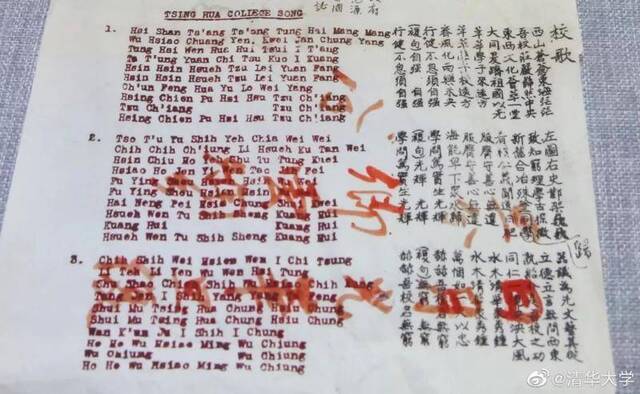 TSING HUA COLLEGE SONG
1. Hsi Shan Ts'ang Ts'ang Tung Hai Mang Mang
Wu Hsiao Chuang Yen, Kwei Jan Chung Yang
Tung Hsi Wen Hua Hui Tsui I T'ang
Ta T'ung Yuan Chi Tsu Kuo I Kuang
Hsin Hsin Hsueh Tzu Lei Yuan Fang
Hsin Hsin Hsueh Tzu Lei Yuan Fang
Ch'un Feng Hua Yu Lo Wei Yang
Hsing Chien Pu Hsi Hsu Tzu Ch'iang
Tzu Ch'iang Tzu Ch'iang
Hsing Chien Pu Hsi Hsu Tzu Ch'iang
2. Tso T'u Yu Shih Yeh Chia Wei Wei
Chih Chih Ch'iung Li Hsueh Ku Tan Wei
Hsin Chiu Ho Shu Tu Tung Kuei
Hsiao Ho Jen Yi Wen Tao Fei
Fu Ying Hsin Wei
Fu Ying Shou Hsin Wei
Hai Neng Pei Hsia Chung Shui
Hsueh Wen Tu Shih Sheng Kuang Hui
Kuang Hui Kuang Hui
Hsueh Wen Tu Shih Sheng Kuang Hui
3. Chih Shih Wei Hsien Wen I Chi Tsung
Li Teh Li Yen Wu Wen Hsi Tung
Shu Shao Chieh Shih Wu Hsiao Chih Kung
Tung I Shih Yang Yang Feng
Shui Mu Tsing Hua Chung Hsiu Chung
Shui Mu Tsing Hua Chung Hsiu Chung
Wan K'un Ju I Shih I Chung
Ho Ho Wu Hsiao Ming Wu Chiung
Wu Chiung Wu Chiung
Ho Ho Wu Hsiao Ming Wu Chiung
校歌
西山蒼蒼東海茫茫
吾校莊嚴巍然中央
東西文化薈萃一堂
大同爰躋祖國以光
莘莘學子來遠方
莘莘學子來遠方
春風化雨樂未央
行健不息須自强
複句自强 自强
行健不息須自强
左圖右史鄴架巍巍
致知窮理學古探微
新舊合冶殊途同歸
肴核仁義聞道日肥
服膺守善心無違
服膺守善心無違
海能卑下衆水歸
學問篤實生光輝
複句光輝 光輝
學問篤實生光輝
器識為先文藝其從
立德立言無問西東
孰紹介是吾校之功
同仁一視泱泱大風
水木清華衆秀鍾
水木清華衆秀鍾
萬悃如一矢以忠
赫赫吾校名無窮
複句無窮 無窮
赫赫吾校名無窮
@清华大学